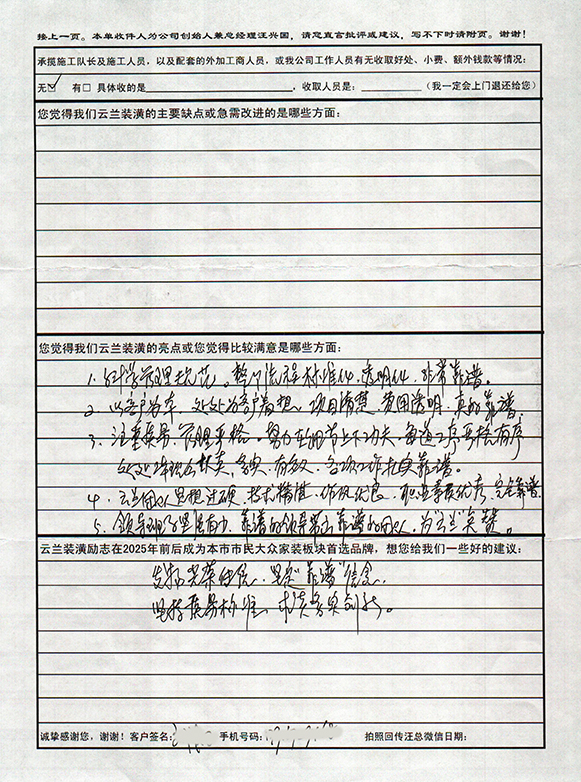 接上一页。本单收件人为公司创始人兼总经理汪兴国，请您直言批评或建议，写不下时请附页。谢谢！
承揽施工队长及施工人员，以及配套的外加工商人员，或我公司工作人员有无收取好处、小费、额外钱款等情况：
无☑ 有□ 具体收的是 ，收取人员是： （我一定会上门退还给您）
您觉得我们云兰装潢的主要缺点或急需改进的是哪些方面：
您觉得我们云兰装潢的亮点或您觉得比较满意是哪些方面：
1. 科学管理规范。整个流程标准化、透明化、非常靠谱。
2. 以客户为本，处处为客户着想，项目清楚，费用透明，真的靠谱。
3. 注重质量，管理严格，努力在细节上下功夫，每道工序严格有序
处处体现 务实、有效，各项工作扎实靠谱。
4. 云兰团队思想过硬，技术精湛，作风优良，职业素养优秀，完全靠谱
5. 领导 靠谱的领导带出靠谱的团队，为“云兰”点赞。
云兰装潢励志在2025年前后成为本市市民大众家装板块首选品牌，想您给我们一些好的建议：
发扬光荣传统，坚定“靠谱”信念
坚持质量标准，求真务实创新。
诚挚感谢您，谢谢！客户签名： 手机号码： 拍照回传汪总微信日期：